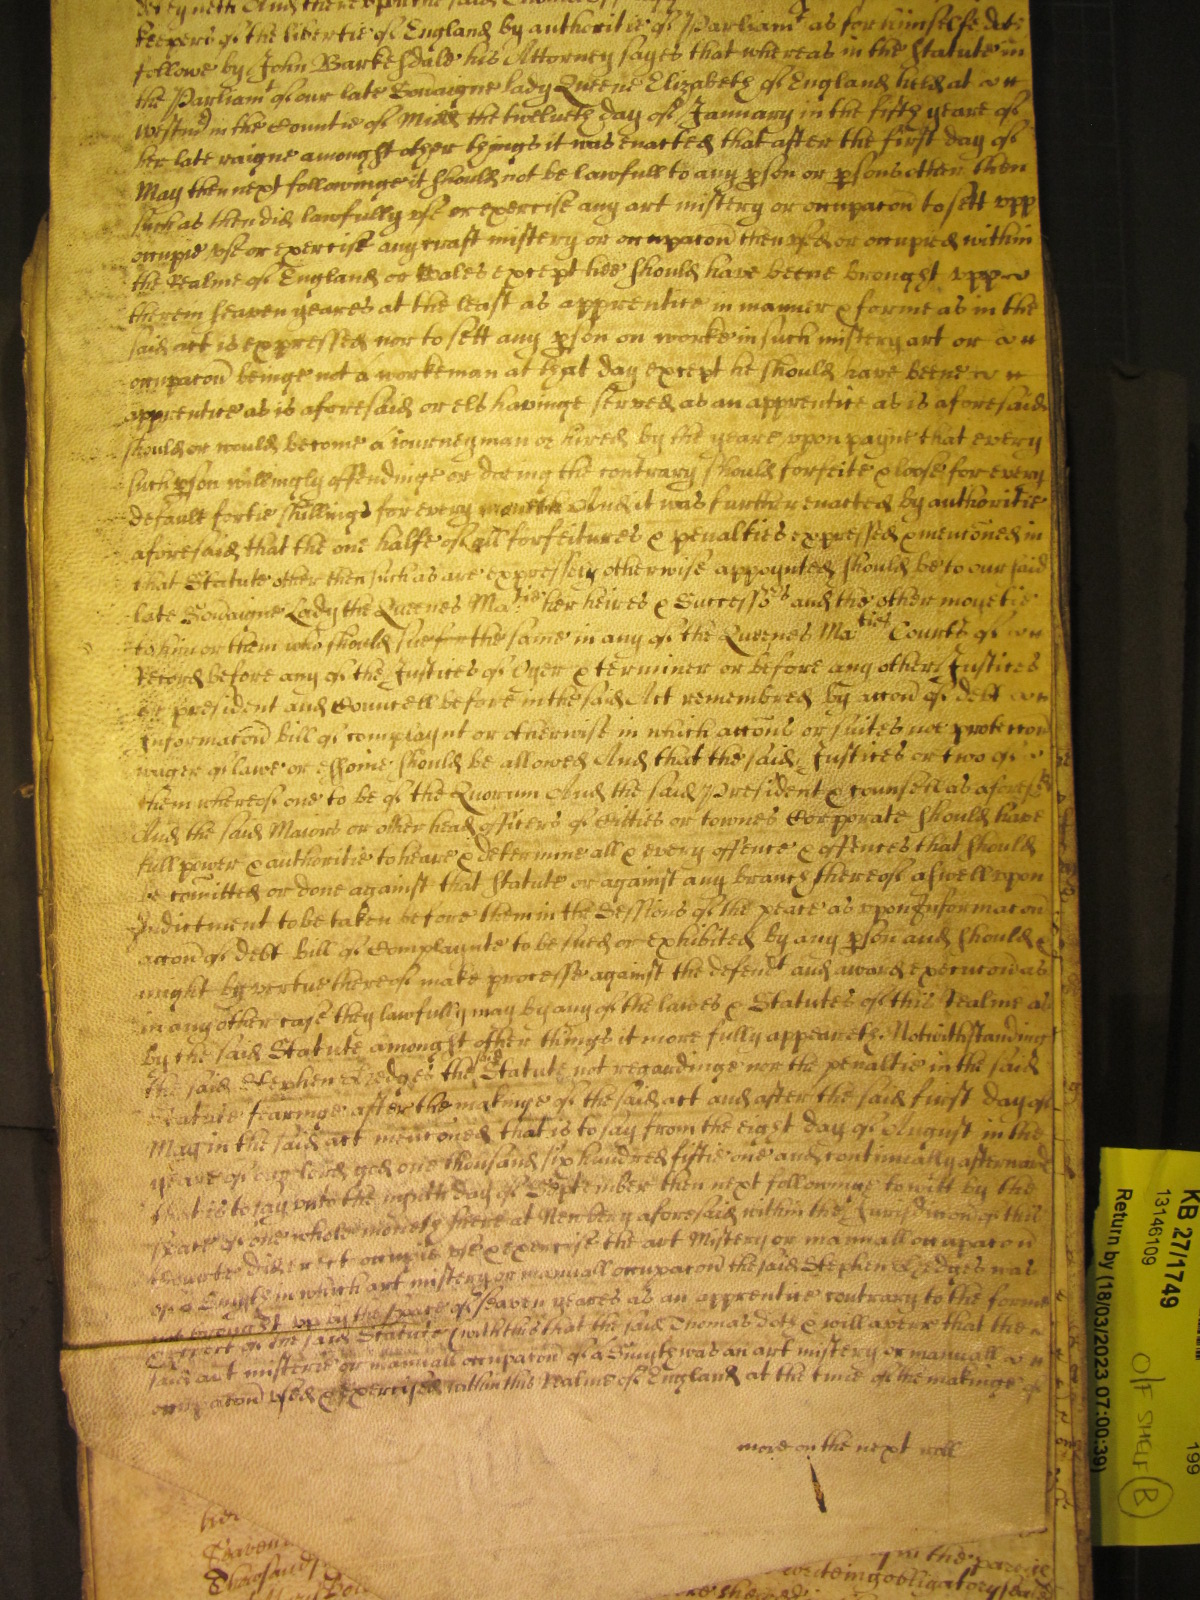 keepers of the libertie of England by authoritie of Parliamt as for himselfe doth
followe by John Barkesdale his Attorney sayes that whereas in the Statute in
the Parliamt of our late Souaigne lady Queene Elizabeth of England held at
Westmr in the Countie of Midd the twelueth day of January in the fifth yeare of
her late raigne amongst other things it was enacted that after the first day of
May then next followinge it should not be lawfull to any pson or psons other then
such as then did lawfully vse or exercise any art mistery or occupacon to sett vpp
occupie vse or exercise any craft mistery or occupacon then vsed or occupied within
the Realme of England or Wales except hee should have beene brought vppe
therein seaven yeares at the least as apprentice in manner & forme as in the
said act is expressed nor to sett any pson on worke in such mistery art or
occupacon beinge not a workeman at that day except he should have beene
apprentice as is aforesaid or els havinge served as an apprentice as is aforesaid
should or would become a iourneyman or hired by the yeare vpon payne that every
such pson willingly offendinge or doeing the contrary should forfeite & loose for every
default fortie shillings for every moneth And it was further enacted by authoritie
aforesaid that the one halfe of all forfeitures & penalties expressed & menconed in
that Statute other then such as are expressely otherwise appoynted should be to our said
late Souaigne Lady the Queenes Matie her heires & Successors and the other moyetie
to him or them who should sue for the same in any of the Queenes Maties Courts of
Record before any of the Justices of Oyer & terminer or before any other Justices
or president and Councell before in the said Act remembred by accon of debt
Informacon bill of complaynt or otherwise in which accons or suites noe proteccon
wager of lawe or essoine should be allowed And that the said Justices or two of
them whereof one to be of the Quorum And the said President & counsell as aforesd
And the said Maiors or other head officers of Citties or townes Corporate should have
full power & authoritie to heare & determine all & every offence & offences that should
be comitted or done against that Statute or against any branch thereof aswell vpon
Indictment to be taken before them in the Sessions of the peace as vpon Informacon
accon of debt bill of Complaynte to be sued or exhibited by any pson and should &
might by vertue thereof make processe against the defendt and award execucon as
in any other case they lawfully may by any of the lawes & Statutes of this Realme as
by the said Statute amongst other things it more fully appeareth. Notwithstanding
the said Stephen Hedges the said Statute not regardinge nor the penaltie in the said
Statute fearinge after the makinge of the said act and after the said first day of
May in the said act menconed that is to say from the eight day of August in the
yeare of our lord god one thousand six hundred fiftie one and continually afterward
that is to say vnto the nynth day of September then next followinge to witt by the
space of one whole moneth there at Newbery aforesaid within the Jurisdiccon of this
Courte did erect occupie vse & exercise the art Mistery or manuall occupacon
of a Smyth in which art mistery or manuall occupacon the said Stephen Hedges was
not brought vp by the space of seaven yeares as an apprentice contrary to the forme
& effect of the said Statute (with this that the said Thomas doth & will averr that the
said art misterie or manuall occupacon of a Smyth was an art mistery or manuall
occupacon vsed & exercised within this Realme of England at the time of the makinge of
more on the next roll
Seaven
Thousand
in the
writeing obligatory
KB 27/1749
199
13146109
Return by (18/03/2023 07:00:39)
O/F SHELF
B